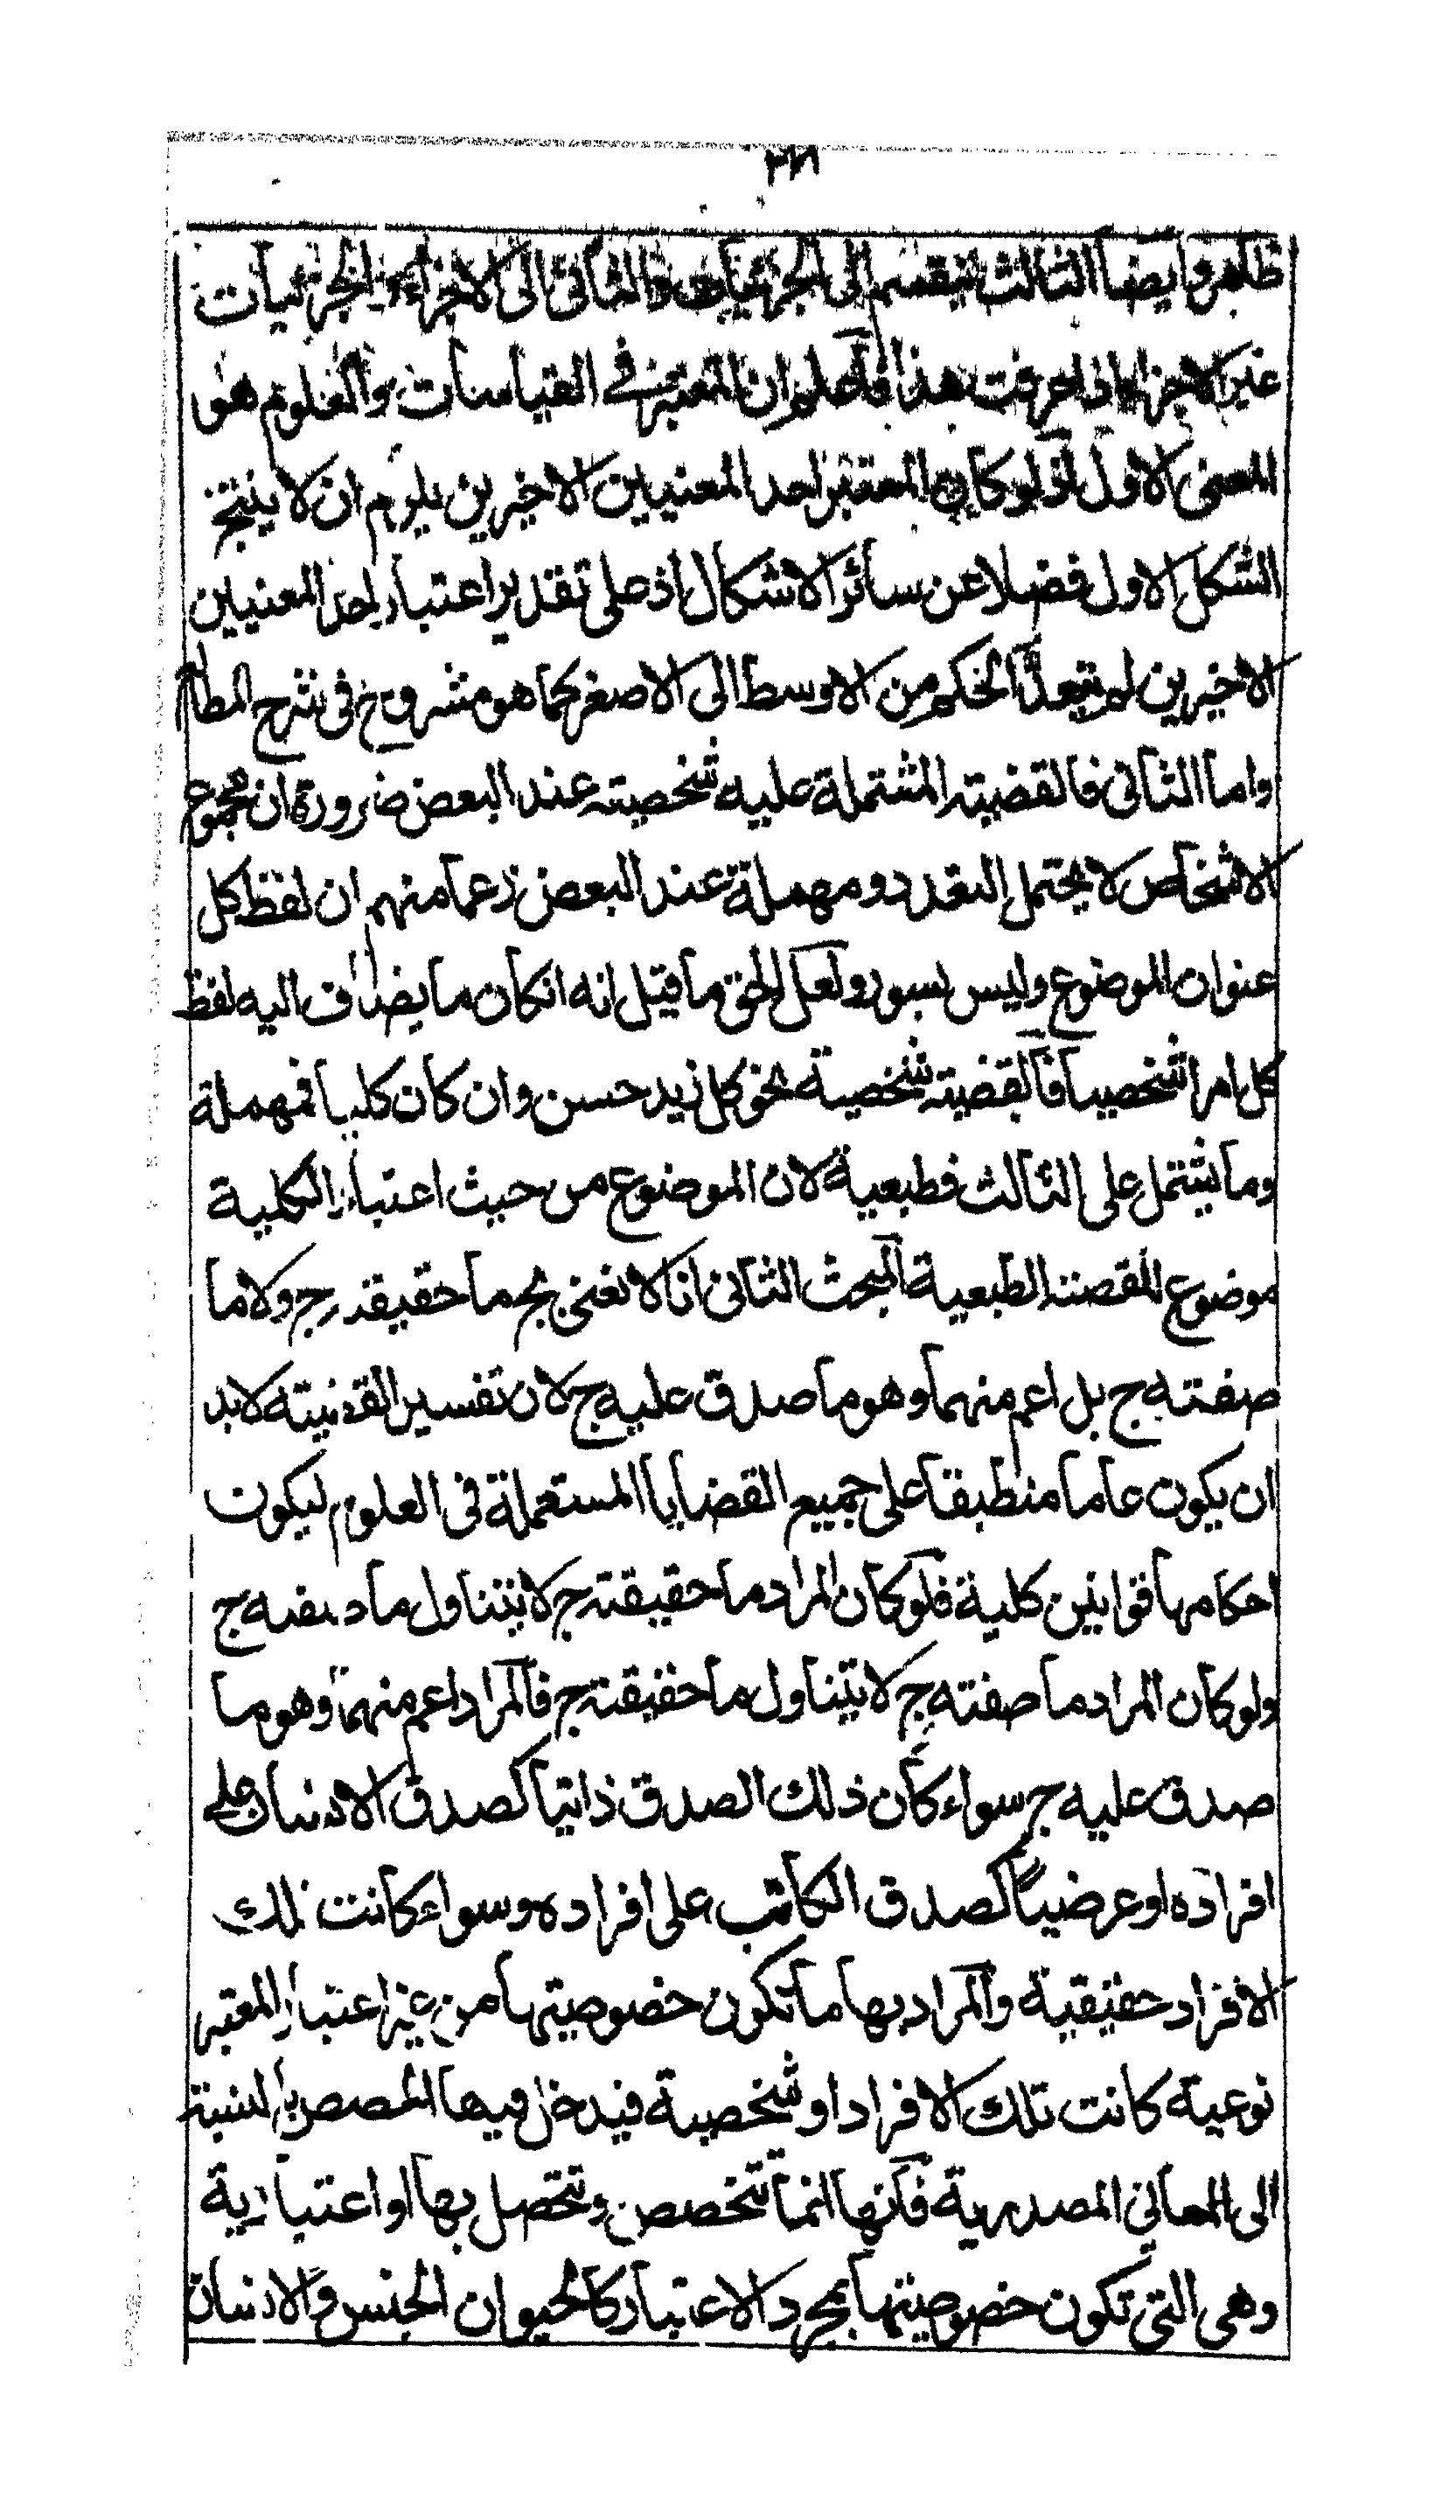 ٢٨
ظاهر وايضا الثالث ينقسم الى الجزئيات والثانى الى الاجزاء والجزئيات
غير الاجزاء اذا عرفت هذا فاعلم ان المعتبر فى القياسات والعلوم هو
المعنى الاول اذ لو كان المعتبر احد المعنيين الاخيرين يلزم ان لا ينتج
الشكل الاول فضلا عن سائر الاشكال اذ على تقدير اعتبار احد المعنيين
الاخيرين لم يتعد الحكم من الاوسط الى الاصغر كما هو مشروح فى شرح المطالع
واما الثانى فالقضية المشتملة عليه شخصية عند البعض ضرورة ان مجموع
الاشخاص لا يحتمل التعدد ومهملة عند البعض زعما منهم ان لفظ كل
عنوان الموضوع وليس بسور ولعل الحق ما قيل انه انكان ما يضاف اليه لفظ
كل امرا شخصيا فالقضية شخصية نحو كل زيد حسن وان كان كليا فمهملة
وما يشتمل على الثالث فطبعية لان الموضوع من حيث اعتبار الكلية
موضوع للقضية الطبعية المبحث الثانى انا لا نعنى بج ما حقيقته ج ولا ما
صفته ج بل اعم منهما وهو ما صدق عليه ج لان تفسير القضية لابد
ان يكون عاما منطبقا على جميع القضايا المستعملة فى العلوم ليكون
احكامها قوانين كلية فلو كان المراد ما حقيقته ج لا يتناول ما صفته ج
ولو كان المراد ما صفته ج لا يتناول ما حقيقته ج فالمراد اعم منهما وهو ما
صدق عليه ج سواء كان ذلك الصدق ذاتيا كصدق الانسان على
افراده او عرضيا كصدق الكاتب على افراده وسواء كانت تلك
الافراد حقيقية والمراد بها ما تكون خصوصيتها من غير اعتبار المعتبر
نوعية كانت تلك الافراد او شخصية فيدخل فيها الحصص بالنسبة
الى المعانى المصدرية فانها انما تتخصص وتتحصل بها او اعتبارية
وهى التى تكون خصوصيتها بمجرد الاعتبار كالحيوان الجنس والانسان